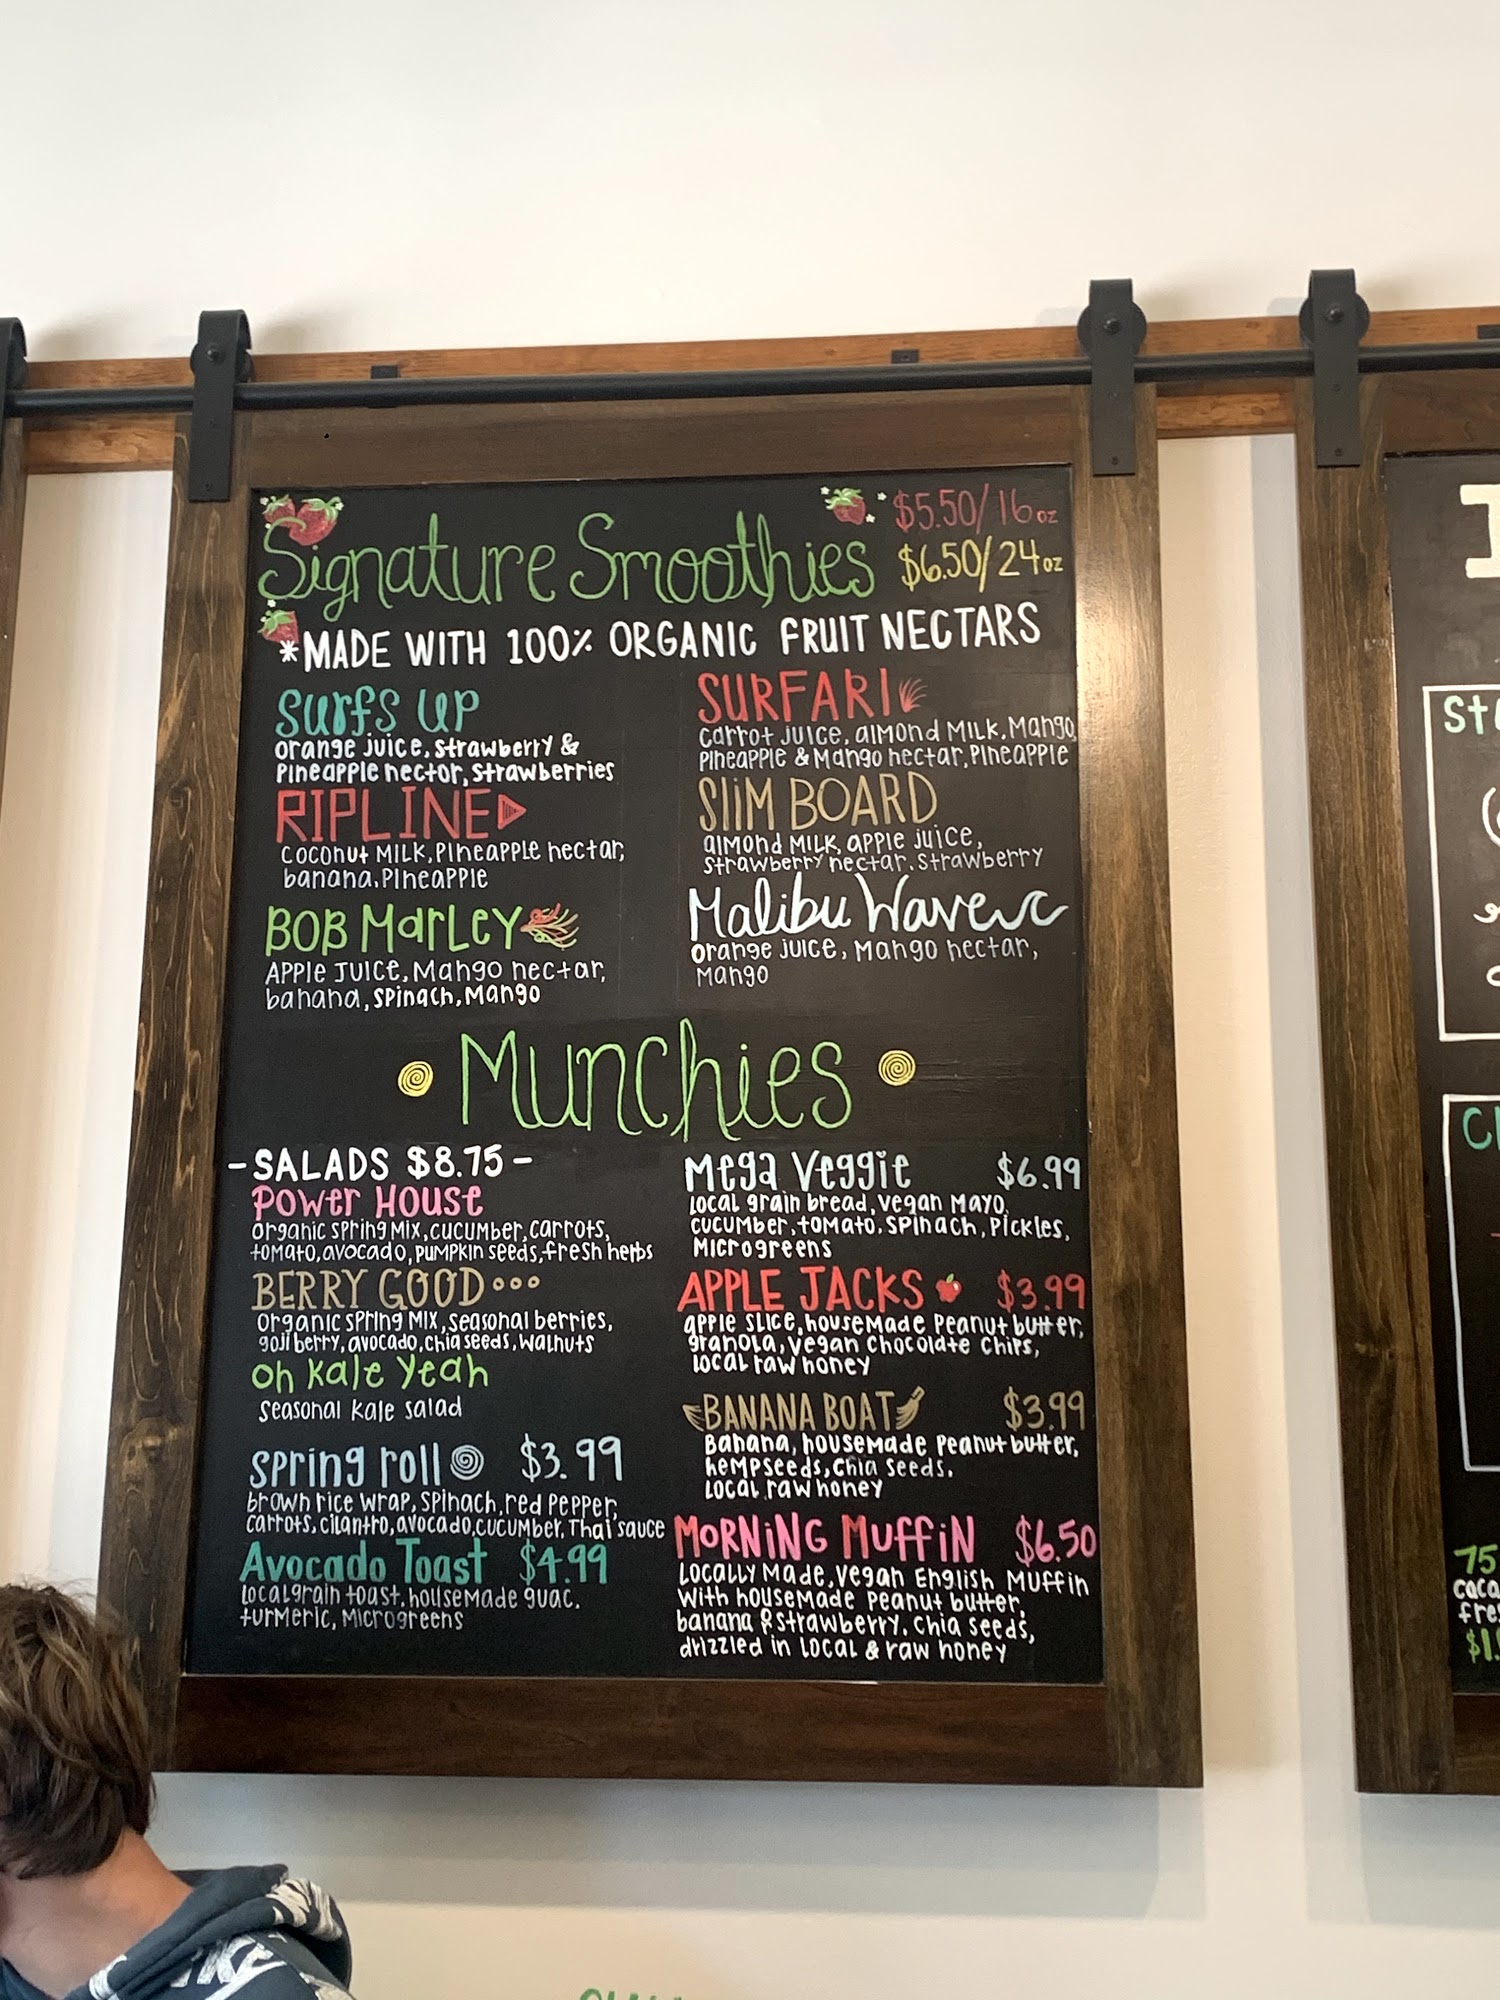 Signature Smoothies
$5.50/16oz
$6.50/24oz
*MADE WITH 100% ORGANIC FRUIT NECTARS
Surfs UP
orange juice, strawberry &
Pineapple nector, strawberries
RIPLINE
coconut MILK, Pineapple nectar,
banana, Pineapple
BOB Marley
Apple Juice, Mango nectar,
banana, spinach, Mango
SURFARI
carrot juice, almond MILK, Mango,
Pineapple & Mango nectar, Pineapple
SLiM BOARD
almond MILK, apple juice,
strawberry nectar, strawberry
Malibu Wave
orange juice, Mango nectar,
Mango
Munchies
-SALADS $8.75-
Power House
organic spring Mix, cucumber, carrots,
tomato, avocado, pumpkin seeds, fresh herbs
BERRY GOOD
organic spring Mix, seasonal berries,
goji berry, avocado, chia seeds, walnuts
oh Kale yeah
seasonal kale salad
spring roll $3.99
brown rice wrap, spinach, red pepper,
carrots, cilantro, avocado, cucumber, Thai sauce
Avocado Toast $4.99
local grain toast, housemade guac,
turmeric, Microgreens
Mega Veggie $6.99
local grain bread, vegan Mayo,
cucumber, tomato, spinach, pickles,
Microgreens
APPLE JACKS $3.99
apple slice, housemade Peanut butter,
granola, vegan chocolate chips,
local raw honey
BANANA BOAT $3.99
Banana, housemade Peanut butter,
hempseeds, chia seeds,
local raw honey
MorNiNG MuffiN $6.50
Locally Made, vegan English Muffin
with housemade Peanut butter,
banana & strawberry, chia seeds,
drizzled in local & raw honey
75